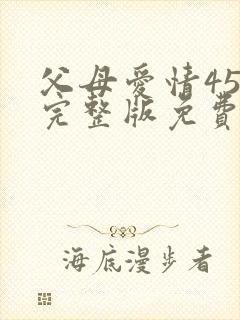 父母愛情45
完整版免費
海底漫步者